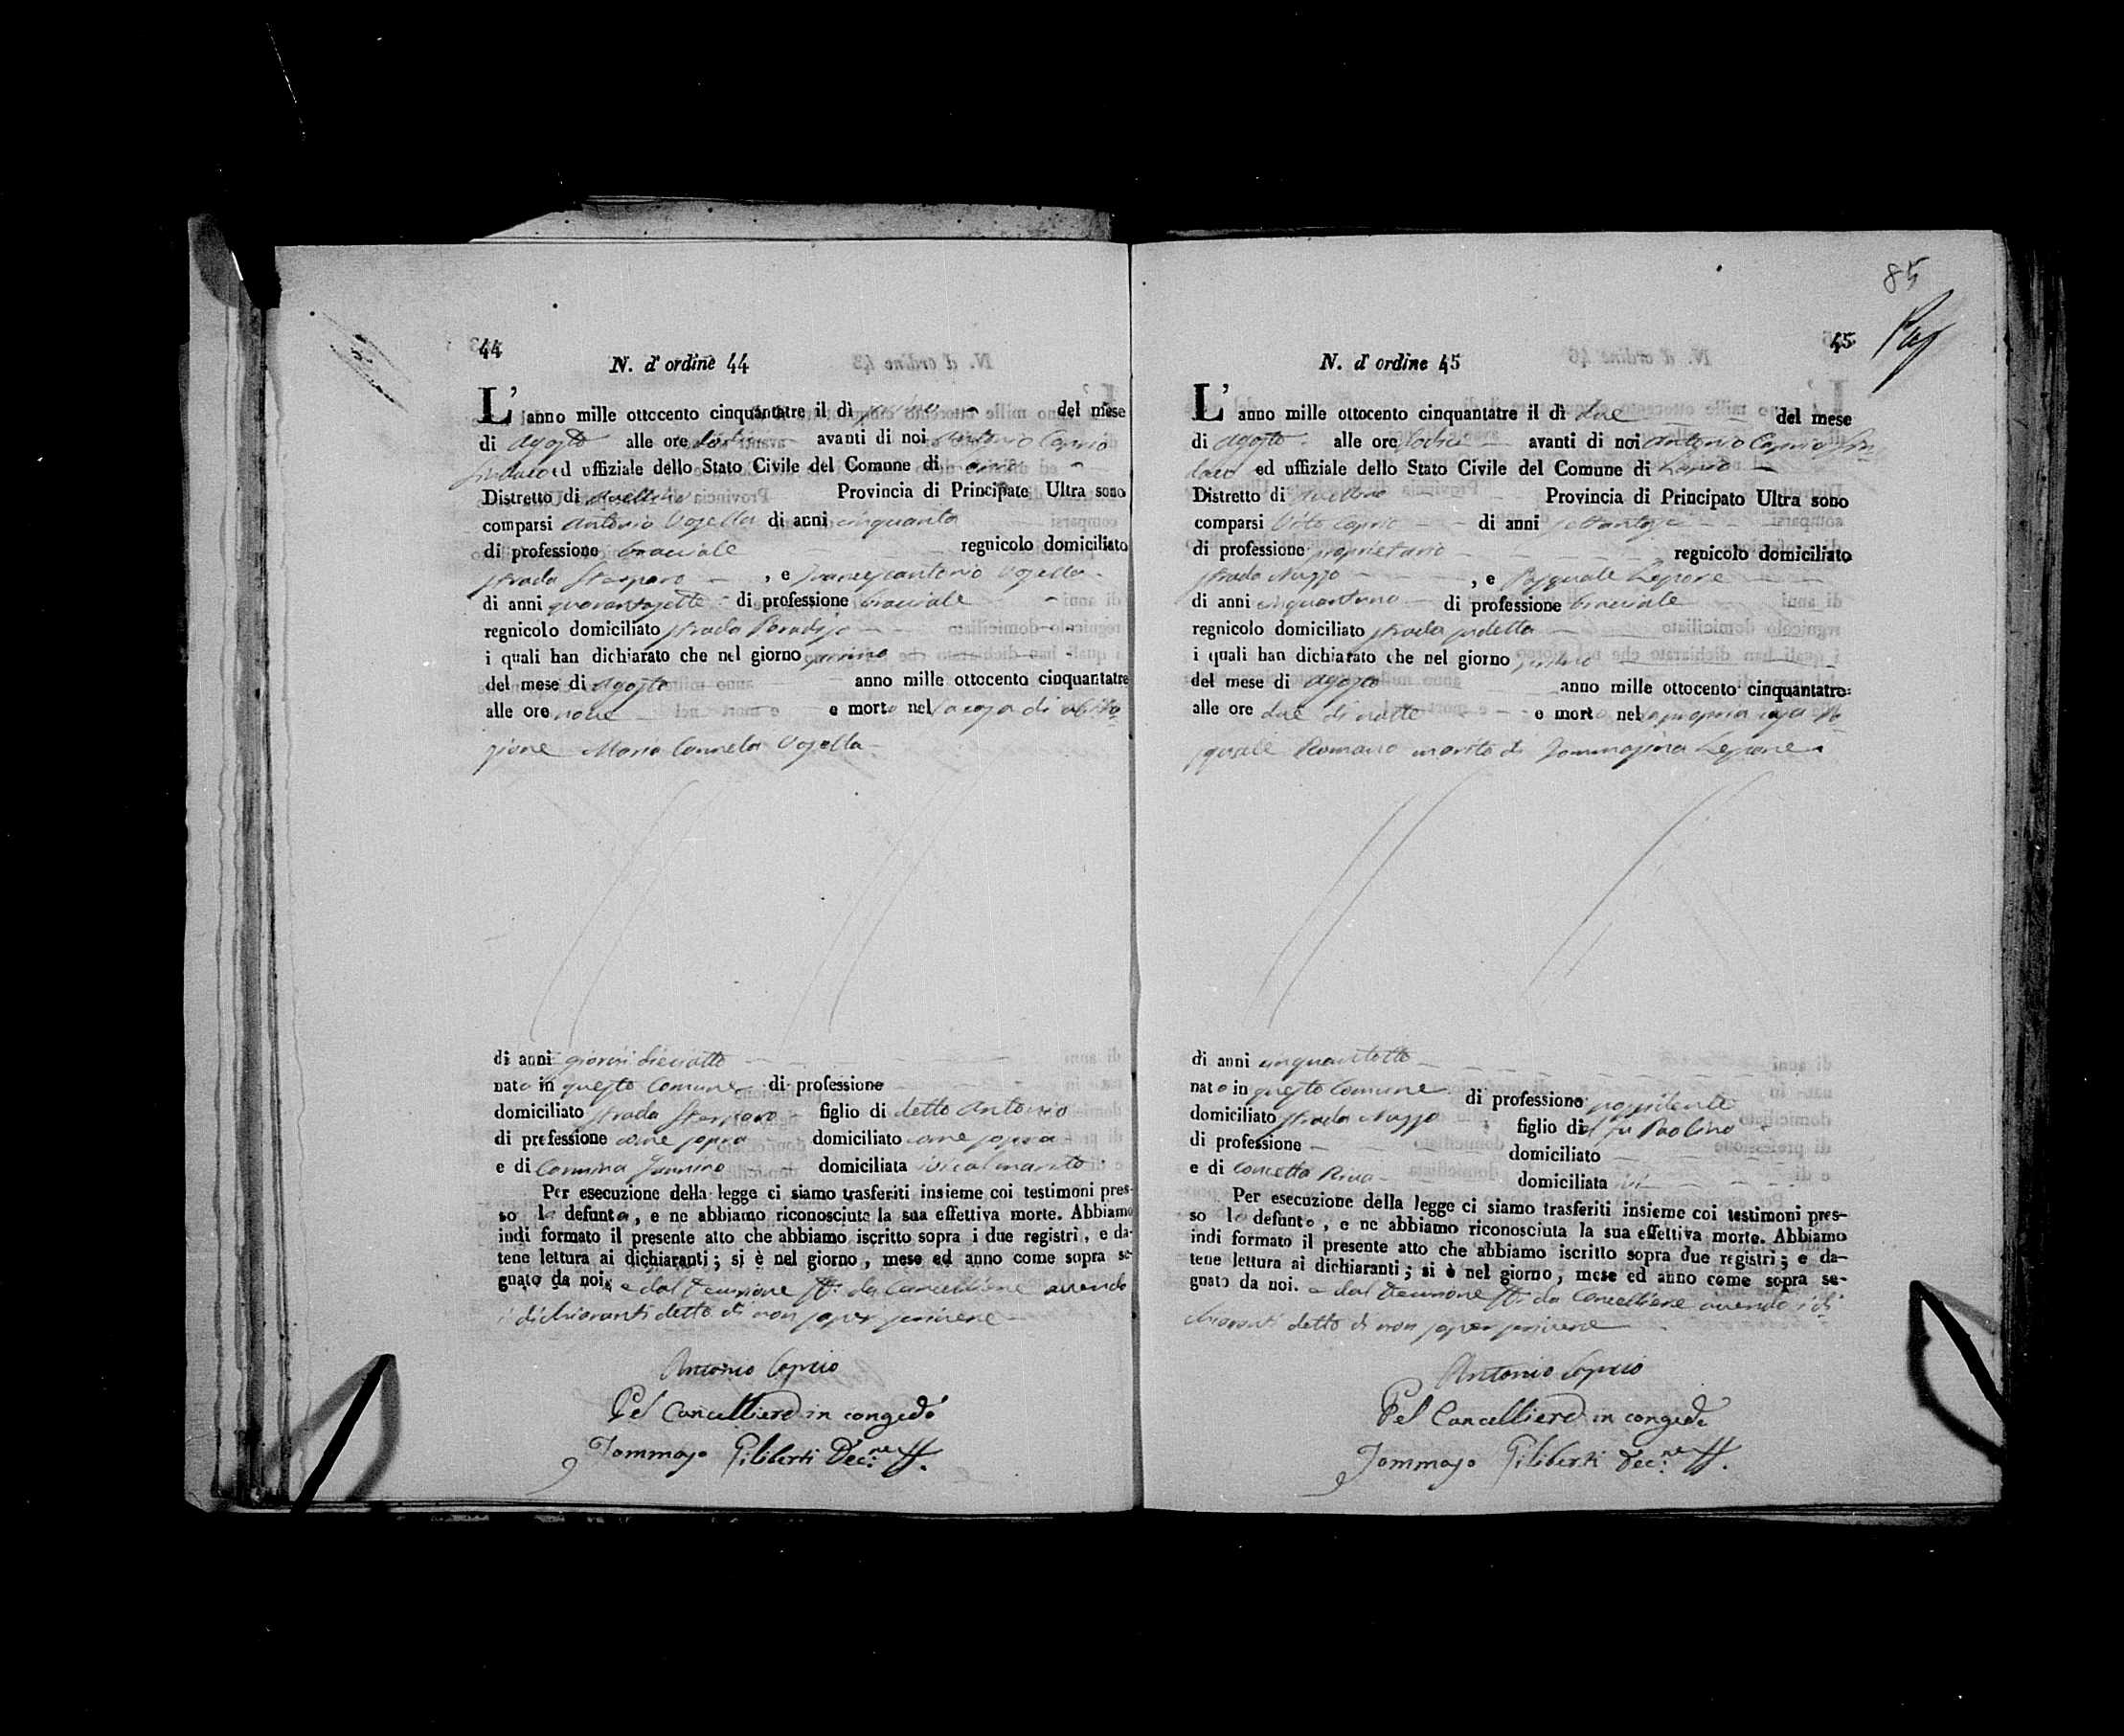 44
N. d' ordine 44
L' anno mille ottocento cinquantatre il dì primo del mese
di Agosto alle ore avanti di noi Antonio Caprio
Sindaco ed uffiziale dello Stato Civile del Comune di Lapio
Distretto di Avellino Provincia di Principato Ultra sono
comparsi Antonio Vozella di anni cinquanta
di professione bracciale regnicolo domiciliato
strada , e Francescantonio Vozella
di anni quarantasette di professione bracciale
regnicolo domiciliato strada Paradiso
i quali han dichiarato che nel giorno primo
del mese di Agosto anno mille ottocento cinquantatre
alle ore nove e morta nel la casa di abita
zione Maria Carmela Vozella
di anni giorni dieciotto
nata in questo Comune di professione
domiciliato strada figlio di detto Antonio
di professione come sopra domiciliato come sopra
e di Carmina domiciliata ivi col marito
Per esecuzione della legge ci siamo trasferiti insieme coi testimoni pres-
so la defunta, e ne abbiamo riconosciuta la sua effettiva morte. Abbiamo
indi formato il presente atto che abbiamo iscritto sopra i due registri, e da-
tene lettura ai dichiaranti; si è nel giorno, mese ed anno come sopra se-
gnato da noi, e dal Decurione ff. da Cancelliere avendo
i dichiaranti detto di non saper scrivere
Antonio Caprio
Pel Cancelliere in congedo
Tommaso Filiberti Dec.ne ff.
85
45
N. d' ordine 45
L' anno mille ottocento cinquantatre il dì due del mese
di Agosto alle ore dodici avanti di noi Antonio Caprio Sin
daco ed uffiziale dello Stato Civile del Comune di Lapio
Distretto di Avellino Provincia di Principato Ultra sono
comparsi Vito Caprio di anni settantasei
di professione proprietario regnicolo domiciliato
strada Nuzzo , e Pasquale Lepore
di anni cinquantuno di professione bracciale
regnicolo domiciliato strada
i quali han dichiarato che nel giorno primo
del mese di Agosto anno mille ottocento cinquantatre
alle ore due di notte e morto nel la propria casa Pa
squale Romano marito di Tommasina Lepore
di anni cinquantotto
nato in questo Comune di professione possidente
domiciliato strada Nuzzo figlio di el fu Paolino
di professione domiciliato
e di Concetta Riva domiciliata ivi
Per esecuzione della legge ci siamo trasferiti insieme coi testimoni pres-
so lo defunto, e ne abbiamo riconosciuta la sua effettiva morte. Abbiamo
indi formato il presente atto che abbiamo iscritto sopra due registri; e da-
tene lettura ai dichiaranti; si è nel giorno, mese ed anno come sopra se-
gnato da noi. e dal Decurione ff. da Cancelliere avendo i di
chiaranti detto di non saper scrivere
Antonio Caprio
Pel Cancelliere in congedo
Tommaso Filiberti Dec.ne ff.